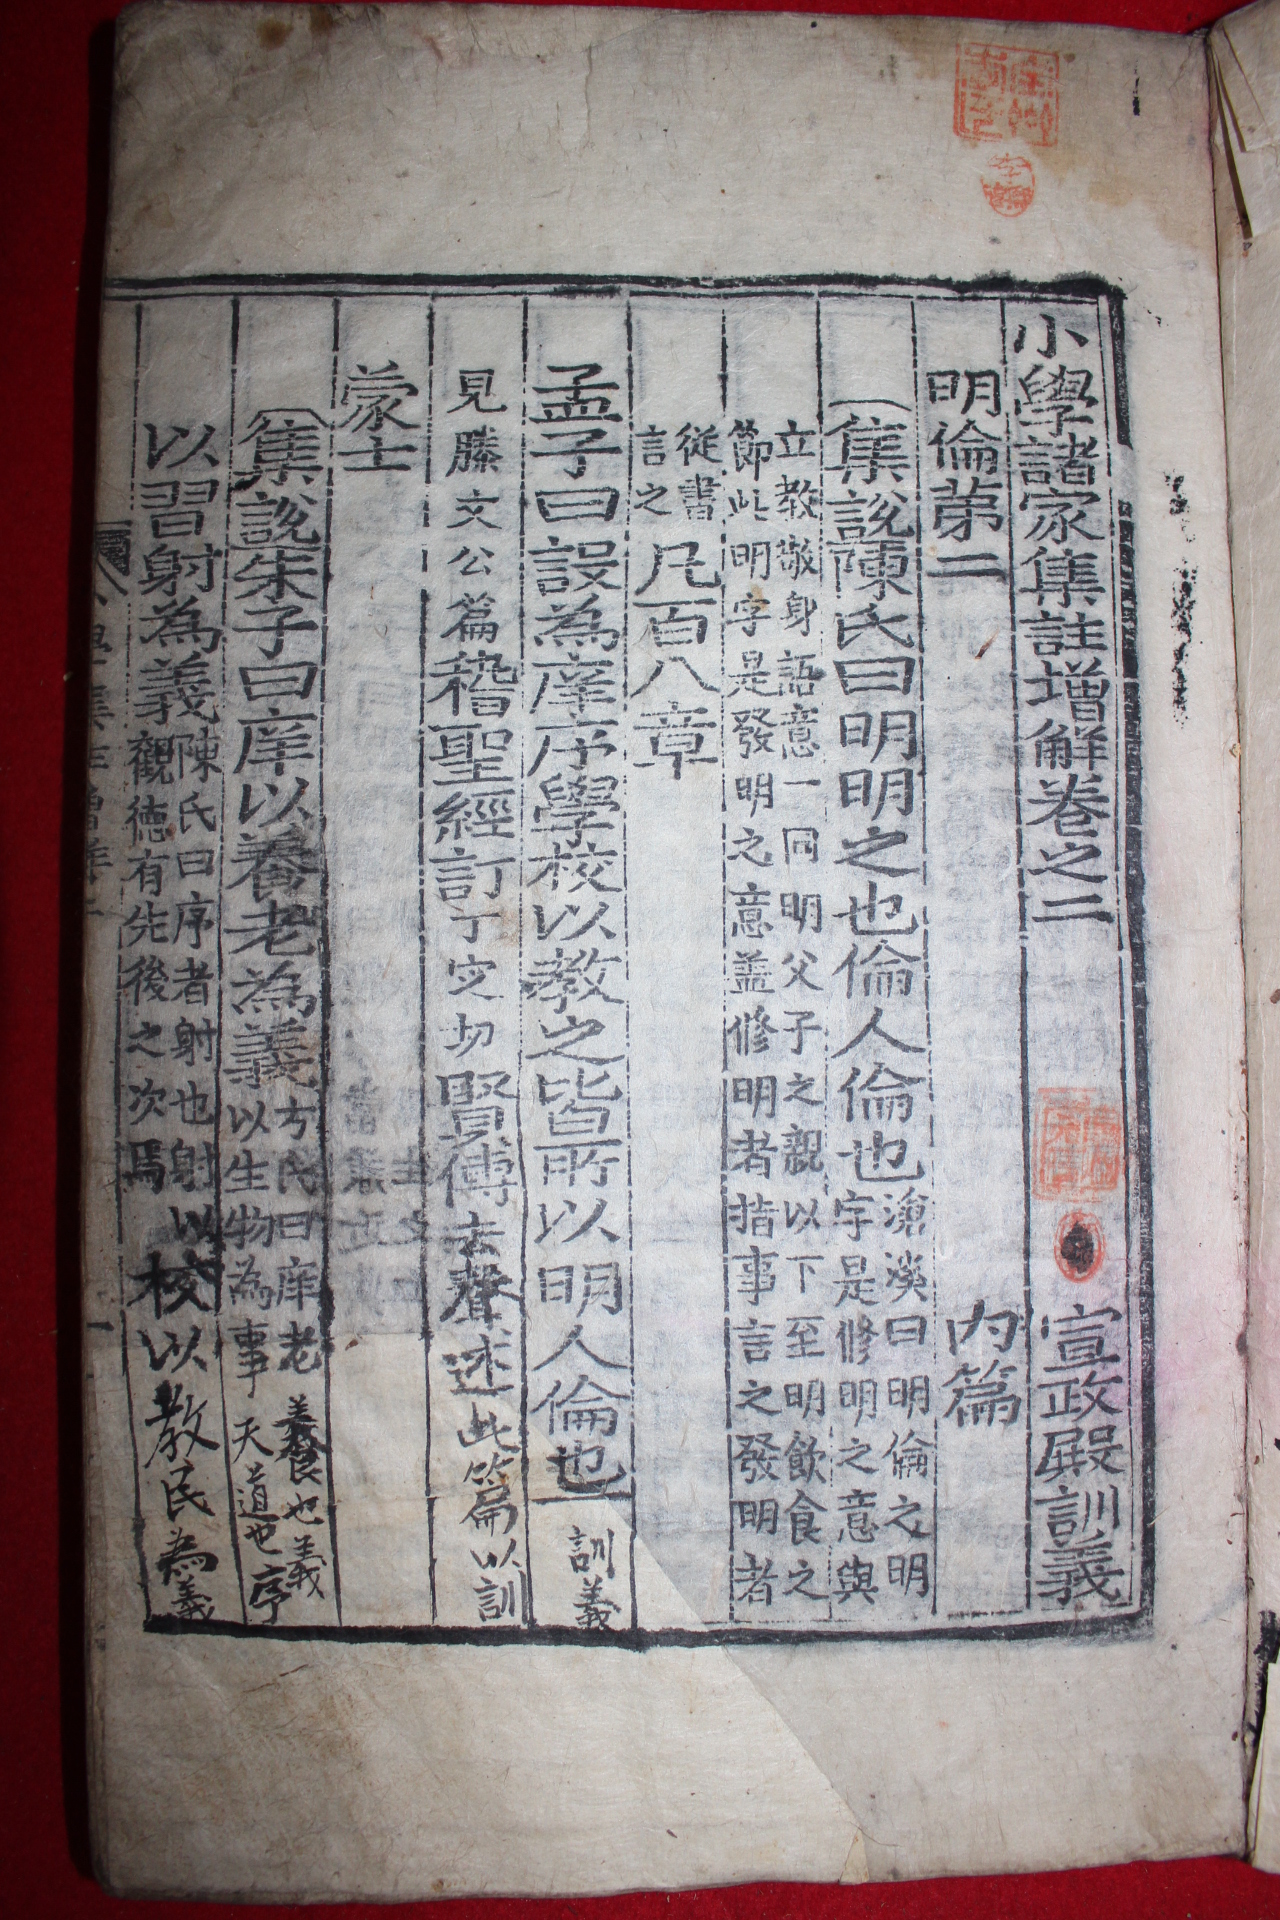 小學諸家集註增解卷之二 宣政殿訓義
明倫第二 內篇
集說陳氏曰明明之也倫人倫也滄溪曰明倫之明
字是修明之意與
立教敬身語意一同明父子之親以下至明飲食之
節此明字是發明之意盖修明者指事言之發明者
從書
言之
凡百八章
孟子曰設為庠序學校以教之皆所以明人倫也訓義
見滕文公篇稽聖經訂丁定切賢傳去聲述此篇以訓
蒙士
集說朱子曰庠以養老為義方氏曰庠老養也義
以生物為事天道也序
以習射為義陳氏曰序者射也射以
觀德有先後之次焉
校以教民為義